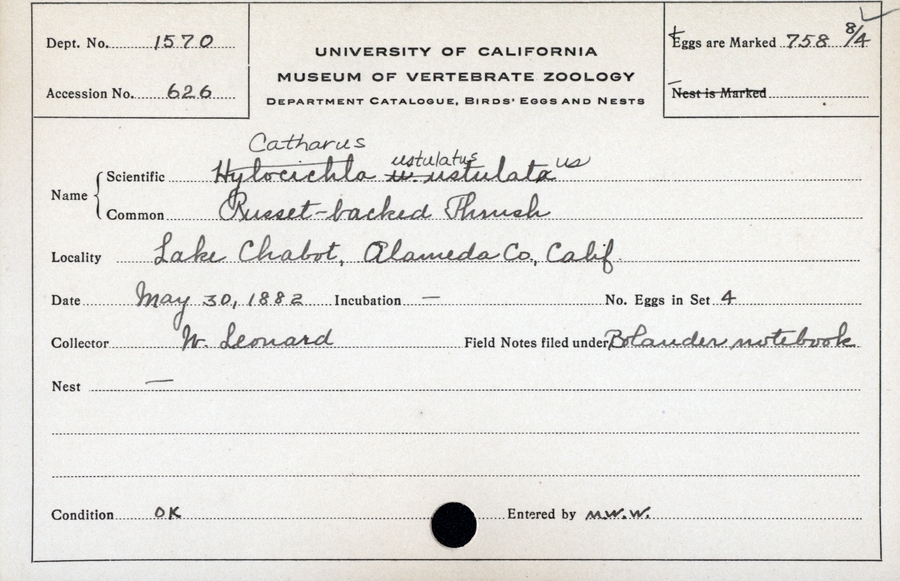 Dept. No. 1570
Accession No. 626
UNIVERSITY OF CALIFORNIA
MUSEUM OF VERTEBRATE ZOOLOGY
DEPARTMENT CATALOGUE, BIRDS' EGGS AND NESTS
Eggs are Marked 758 8/4
Nest is Marked
Catharus
ustulatus us
Name Scientific Hylocichla u. ustulata
Common Russet-backed Thrush
Locality Lake Chabot, Alameda Co., Calif.
Date May 30, 1882 Incubation — No. Eggs in Set 4
Collector W. Leonard Field Notes filed under Bolander notebook
Nest —
Condition OK Entered by M.W.W.